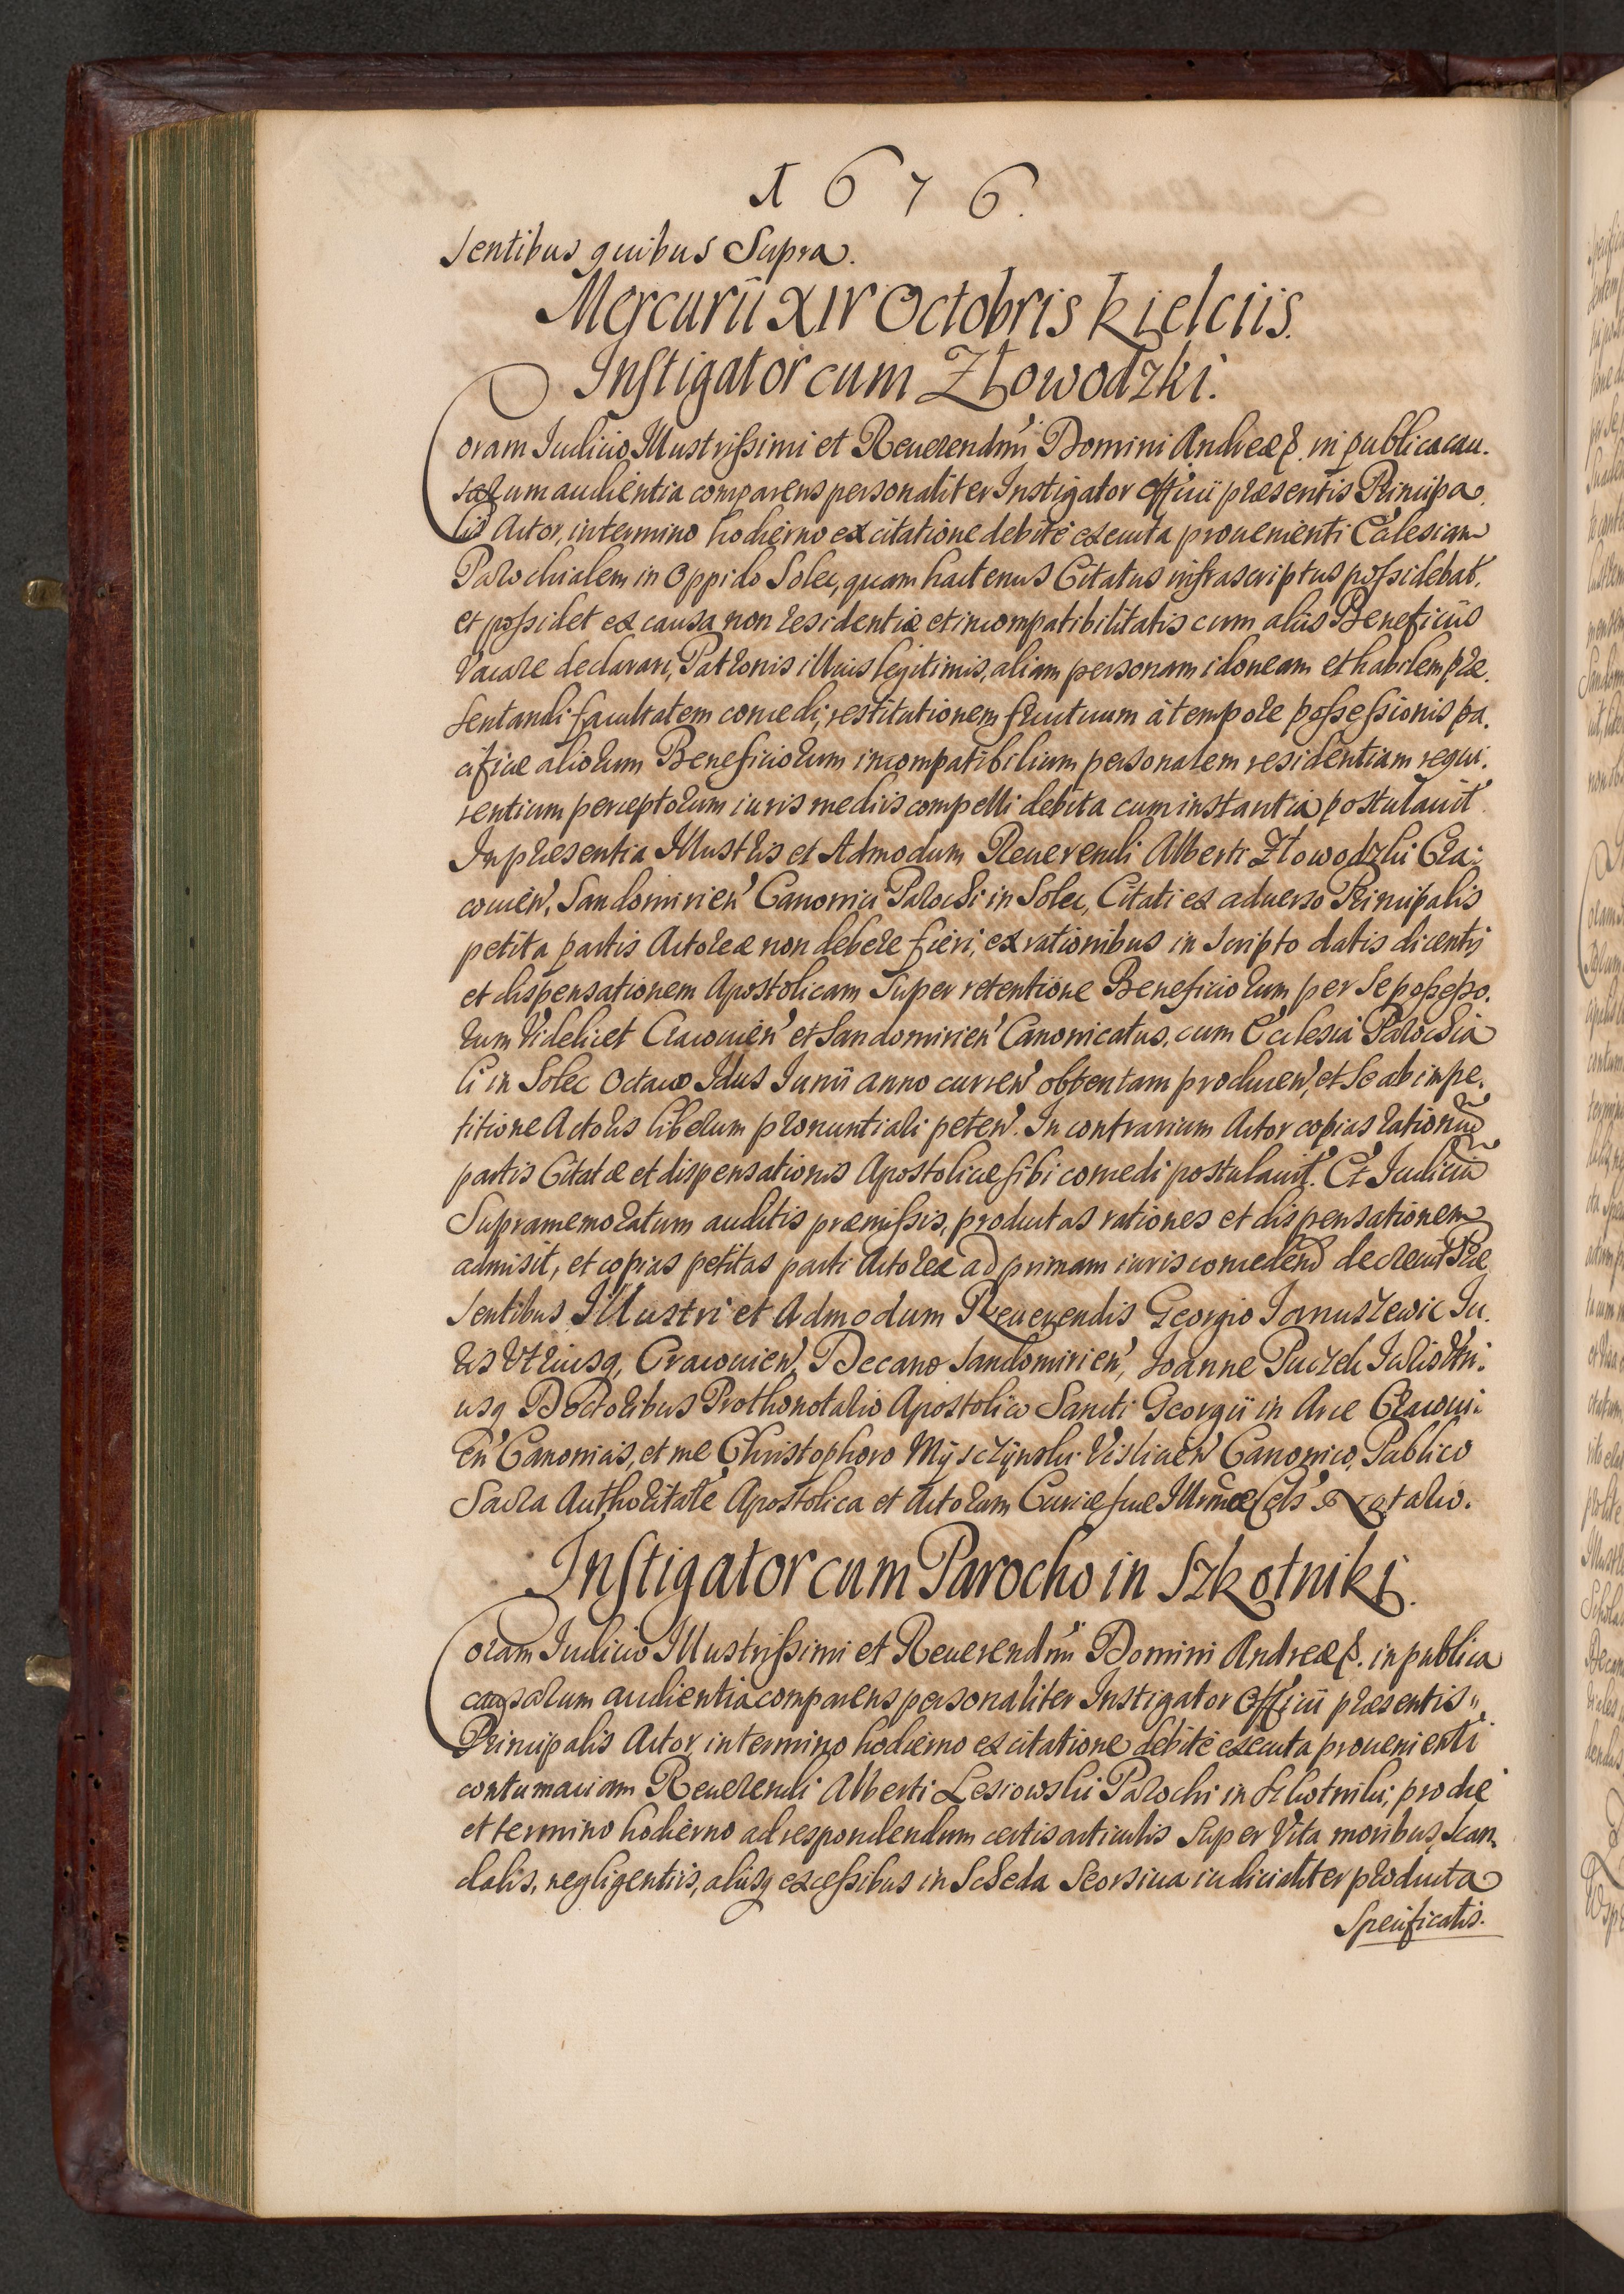 1676.
sentibus quibus Supra.
Mercurii XIV Octobris Kielciis.
Instigator cum Złowodzki.
Coram Iudicio Illustrissimi et Reuerendmi Domini Andreæ &. in publica cau-
sarum audientia comparens personaliter Instigator Officii præsentis Principa-
lis Actor, in termino hodierno ex citatione debite executa prouenienti Ecclesiam
Parochialem in Oppido Solec, quam hactenus Citatus infrascriptus possidebat,
et possidet ex causa non residentiæ et incompatibilitatis cum aliis Beneficiis
Vacare declarari, Patronis illius legitimis, aliam personam idoneam et habilem præ-
sentandi facultatem concedi; restitutionem fructuum à tempore possessionis pa-
cificæ aliorum Beneficiorum incompatibilium personalem residentiam requi-
rentium perceptorum iuris mediis compelli debita cum instantia postulauit.
In præsentia Illustris et Admodum Reuerendi Alberti Złowodzki Cra-
couien, Sandomirien Canonici Parochi in Solec, Citati ex aduerso Principalis
petita partis Actoreæ non debere fieri, ex rationibus in scripto datis dicentis
et dispensationem Apostolicam super retentione Beneficiorum per se possesso-
rum Videlicet Cracouien et Sandomirien Canonicatus, cum Ecclesia Parochia
li in Solec Octauo Idus Iunii anno curren obtentam producen, et se ab impe-
titione Actoris liberum pronuntiari peten. In contrarium Actor copias rationu
partis Citatæ et dispensationis Apostolicæ sibi concedi postulauit. Et Iudiciu
Supramemoratum auditis præmissis, productas rationes et dispensationem
admisit, et copias petitas parti Actoreæ ad primam iuris concedend decreuit Præ
sentibus Illustri et Admodum Reuerendis Georgio Ianuszewic Iu-
ris Vtriusq, Cracouien, Decano Sandomirien, Ioanne Puczek Iuris Vtri-
usq Doctoribus Prothonotario Apostolico Sancti Georgii in Arce Cracoui-
en Canonicis, et me Christophoro Mijsczijnski Visliciën Canonico, Publico
Sacra Authoritate Apostolica et Actorum Curiæ suæ Illrmæ Cels Notario.
Instigator cum Parocho in Szkotniki.
Coram Iudicio Illustrissimi et Reuerendmi Domini Andreæ &. in publica
causarum audientia comparens personaliter Instigator Officii præsentis
Principalis Actor, in termino hodierno ex citatione debite executa prouenienti
contumaciam Reuerendi Alberti Lesiowski Parochi in Szkotniki, pro die
et termino hodierno ad respondendum certis articulis super Vita moribus, scan-
dalis, negligentiis, aliisq excessibus in Scheda Seorsiua iudicialiter producta
Specificatis.